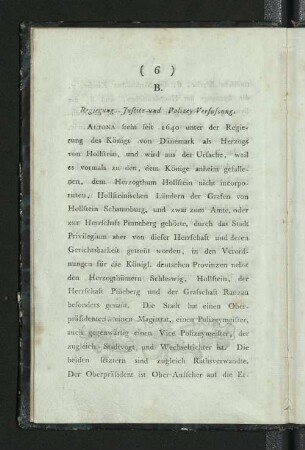 ( 6 )
B.
Regierung- Justitz- und Polizey-Verfassung.
ALTONA steht seit 1640 unter der Regie-
rung des Königs von Dänemark als Herzogs
von Hollstein, und wird aus der Ursache, weil
es vormals zu den, dem Könige anheim gefalle-
nen, dem Herzogthum Hollstein nicht incorpo-
rirten, Hollsteinischen Ländern der Grafen von
Hollstein Schaumburg, und zwar zum Amte, oder
zur Herrschaft Pinneberg gehörte, durch das Stadt
Privilegium aber von dieser Herrschaft und deren
Gerichtsbarkeit getrent worden, in den Verord-
nungen für die Königl. deutschen Provinzen nebst
den Herzogthümern Schleswig, Hollstein, der
Herrschaft Pinneberg und der Grafschaft Ranzau
besonders genant. Die Stadt hat einen Ober-
präsidenten, einen Magistrat, einen Polizeymeister,
auch gegenwärtig einen Vice Polizeymeister, der
zugleich Stadtvogt, und Wechselrichter ist. Die
beiden letztern sind zugleich Rathsverwandte.
Der Oberpräsident ist Ober-Aufseher auf die Er-